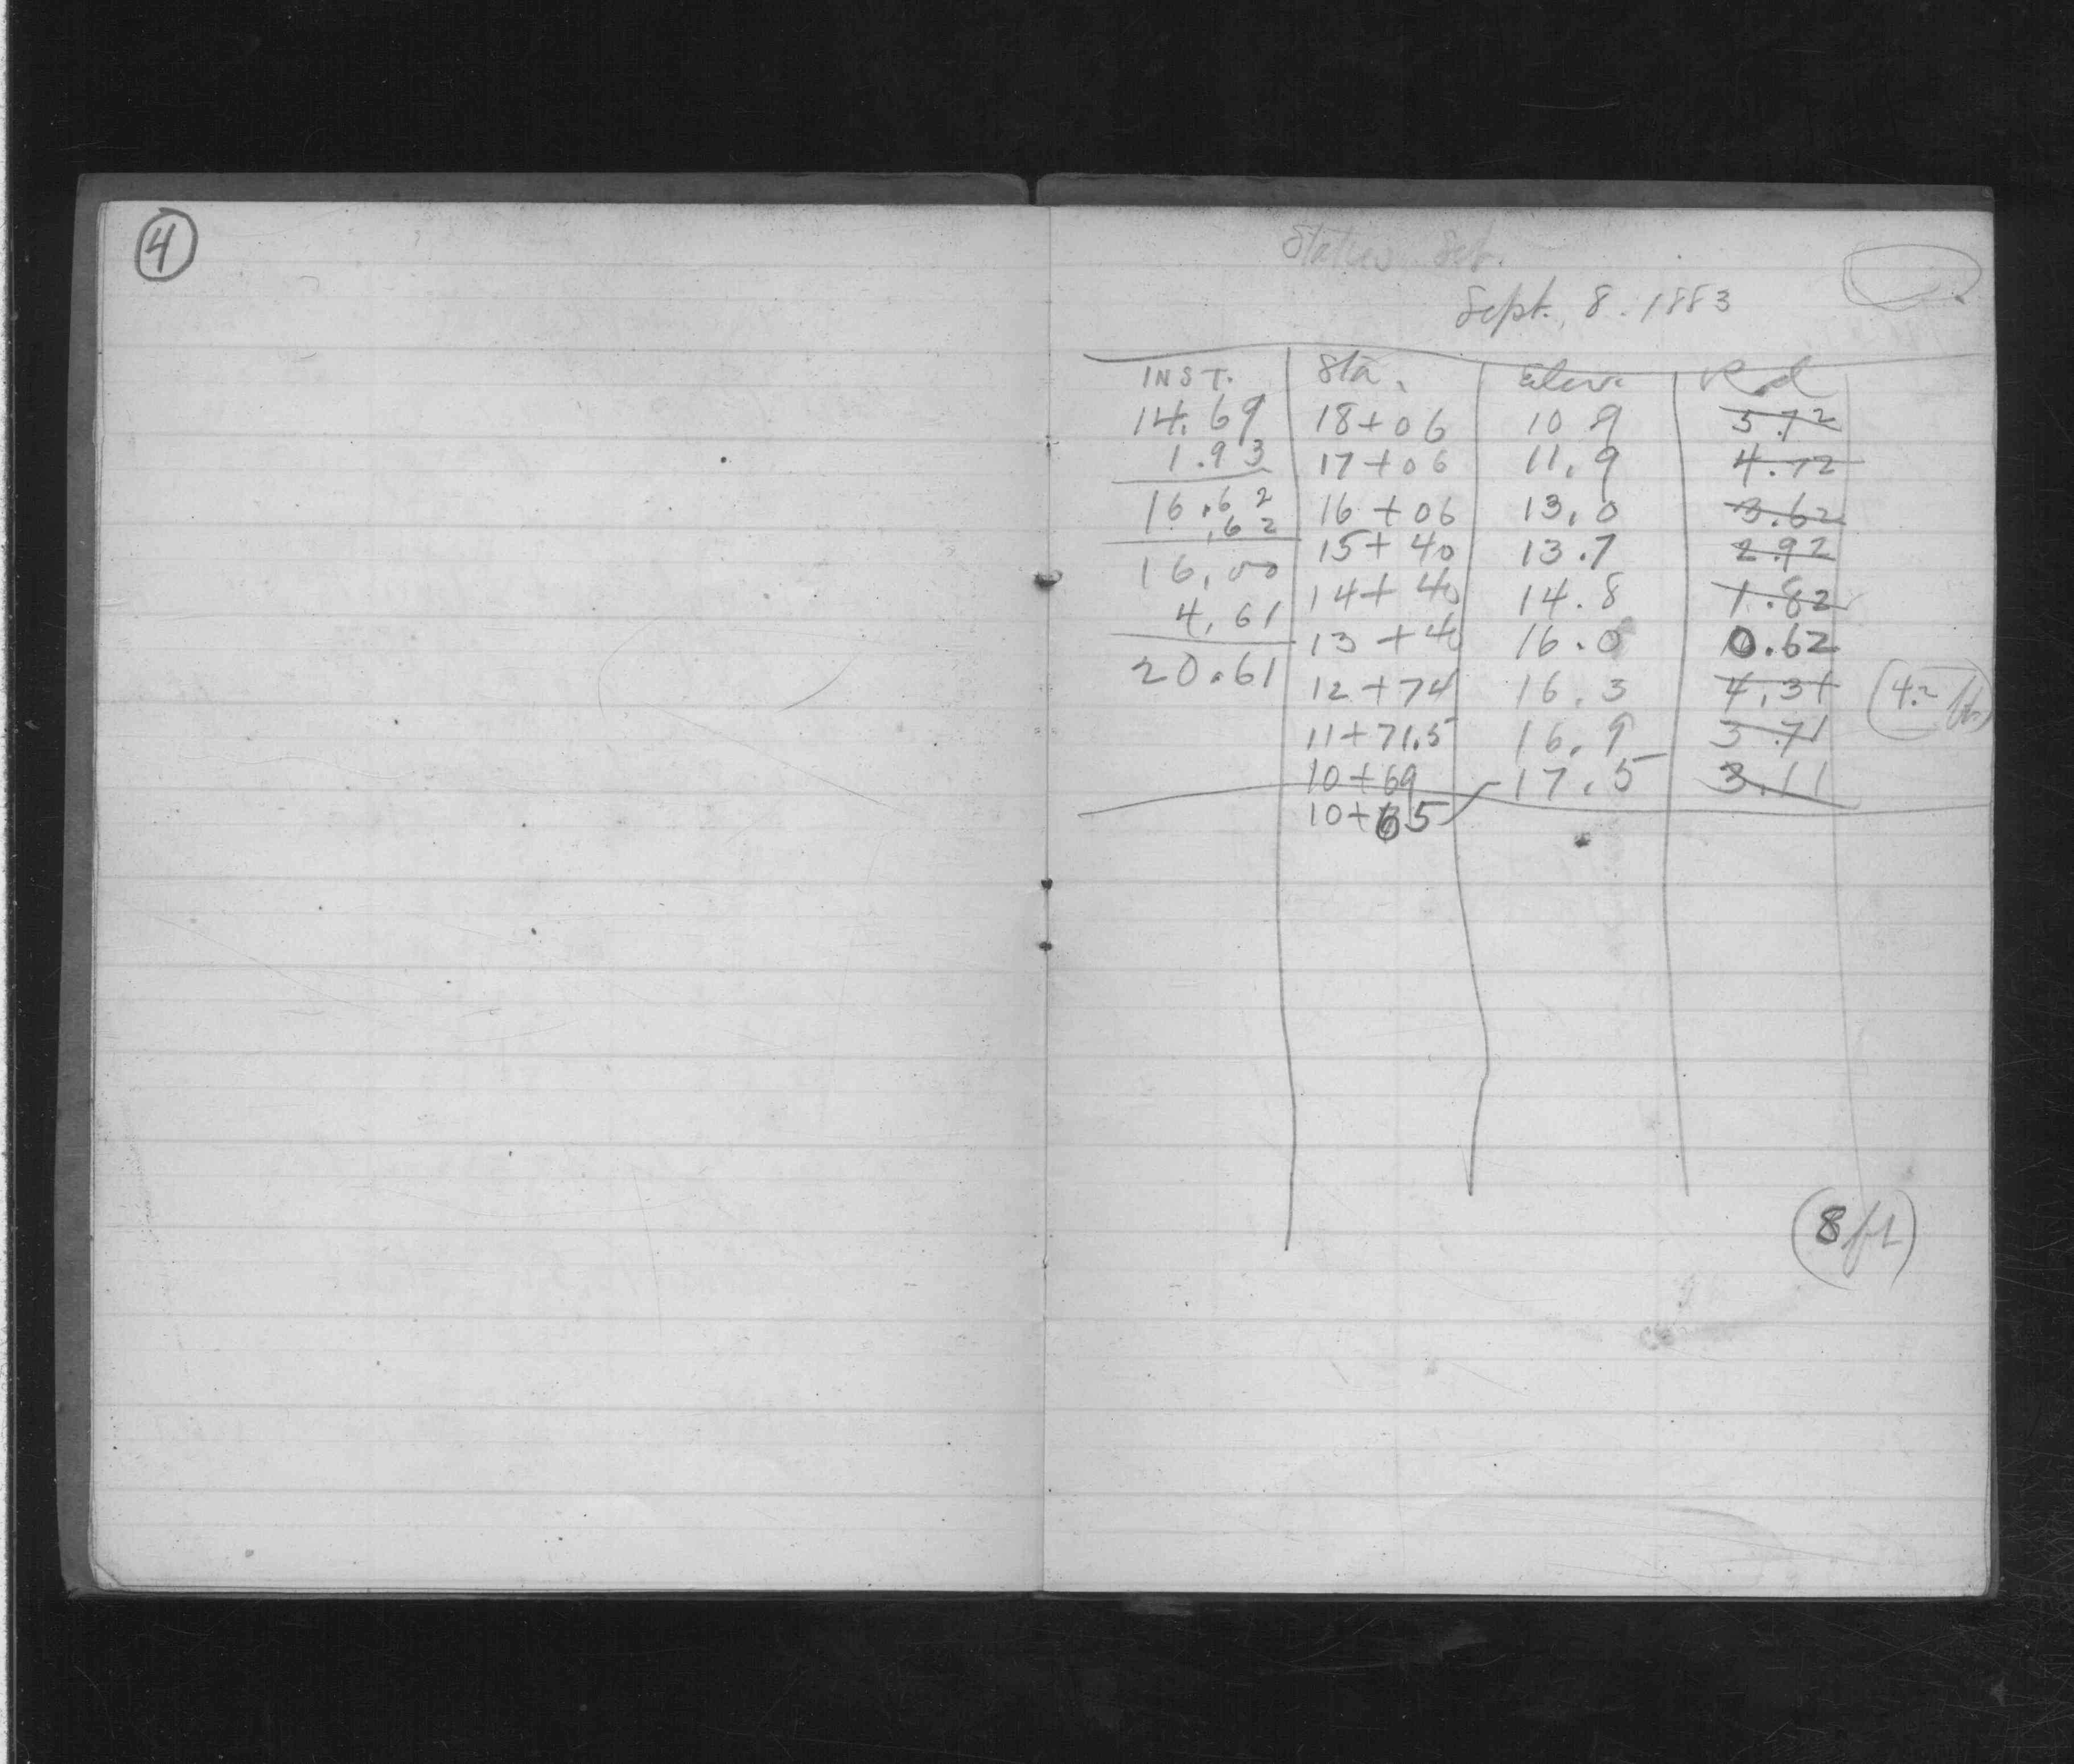 4
Stakes Set.
Sept. 8. 1883
INST. Sta. Elev. Rod
14.69 18+06 10.9 5.72
1.93 17+06 11.9 4.72
16.62 16+06 13.0 3.62
.62 15+40 13.7 2.92
16.00 14+40 14.8 1.82
4.61 13+40 16.0 0.62
20.61 12+74 16.3 4.31 (4.2 ft)
11+71.5 16.9 3.71
10+69 17.5 3.11
10+65
(8 ft)